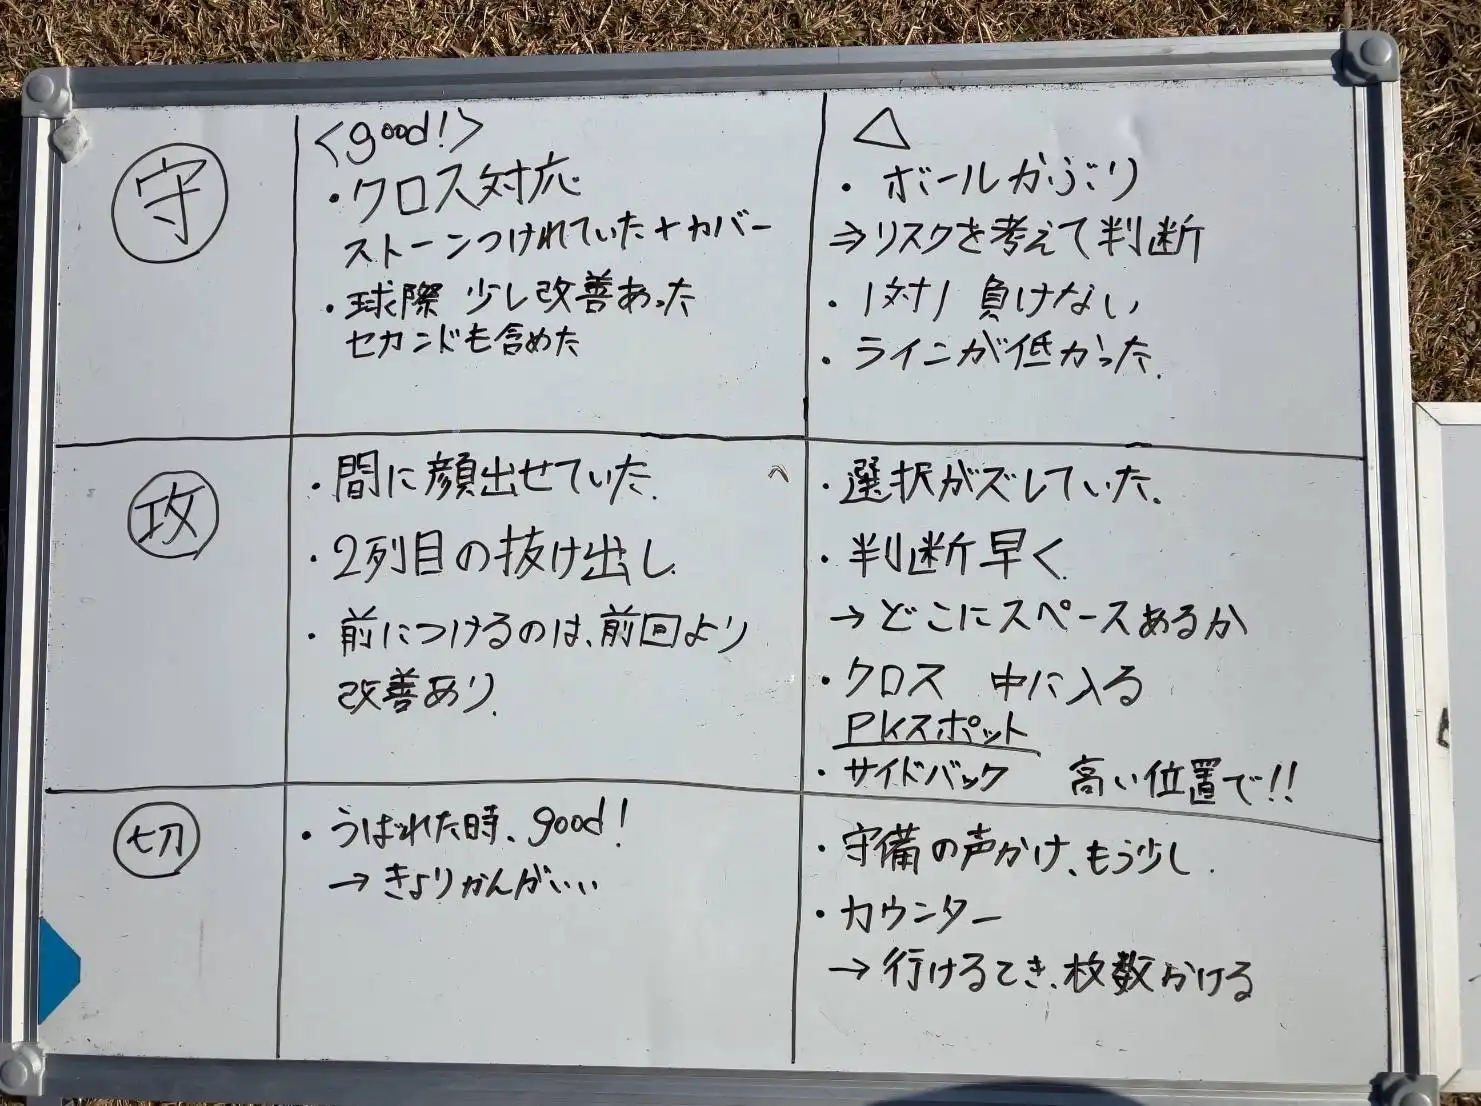 守
<good!>
・クロス対応
ストーンつけれていた+カバー
・球際 少し改善あった
セカンドも含めた
△
・ボールかぶり
⇒リスクを考えて判断
・1対1 負けない
・ラインが低かった.
攻
・間に顔出せていた.
・2列目の抜け出し.
・前につけるのは、前回より
改善あり.
・選択がズレていた.
・判断早く.
→どこにスペースあるか
・クロス 中に入る
PKスポット
・サイドバック 高い位置で!!
切
・うばれた時、good!
→きょりかんがいい
・守備の声かけ、もう少し.
・カウンター
→行けるとき、枚数かける